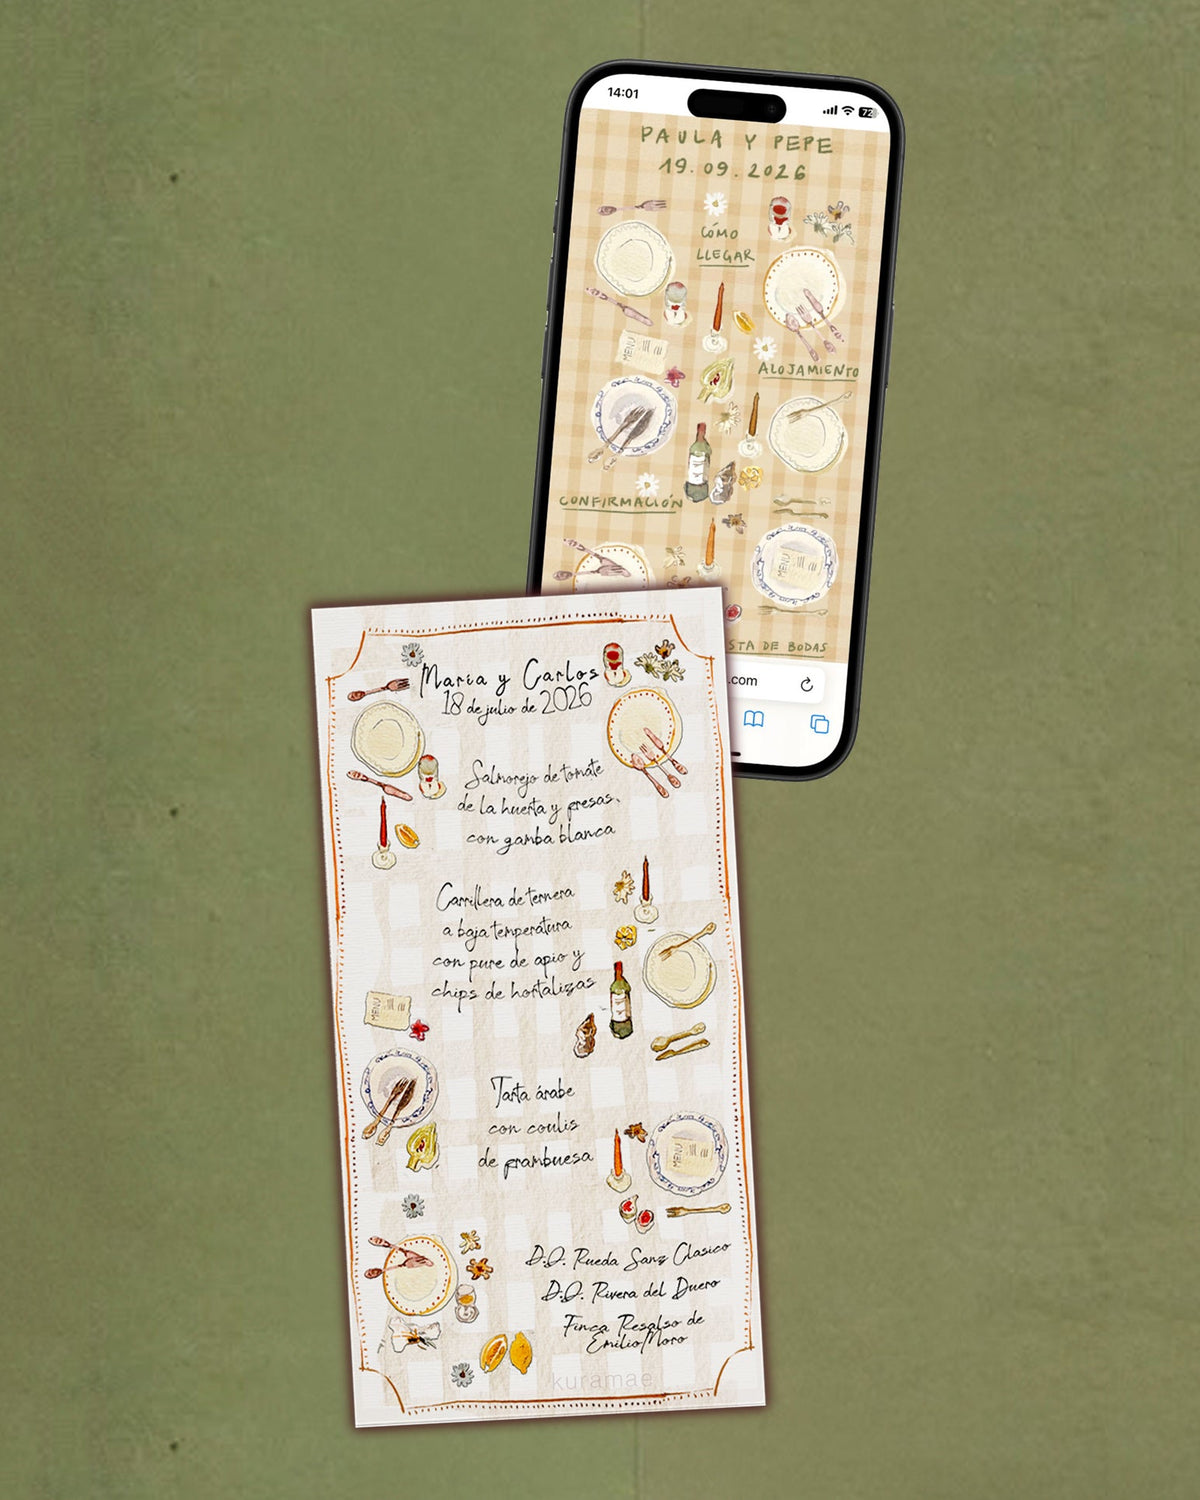 14:01
72
PAULA Y PEPE
19.09.2026
CÓMO
LLEGAR
MENU
ALOJAMIENTO
CONFIRMACIÓN
MENU
STA DE BODAS
.com
María y Carlos
18 de julio de 2026
Salmorejo de tomate
de la huerta y fresas,
con gamba blanca
Carrillera de ternera
a baja temperatura
con pure de apio y
chips de hortalizas
MENU
Tarta árabe
con coulis
de frambuesa
MENU
D.O. Rueda Sanz Clasico
D.O. Rivera del Duero
Finca Resalso de
Emilio Moro
kuramae